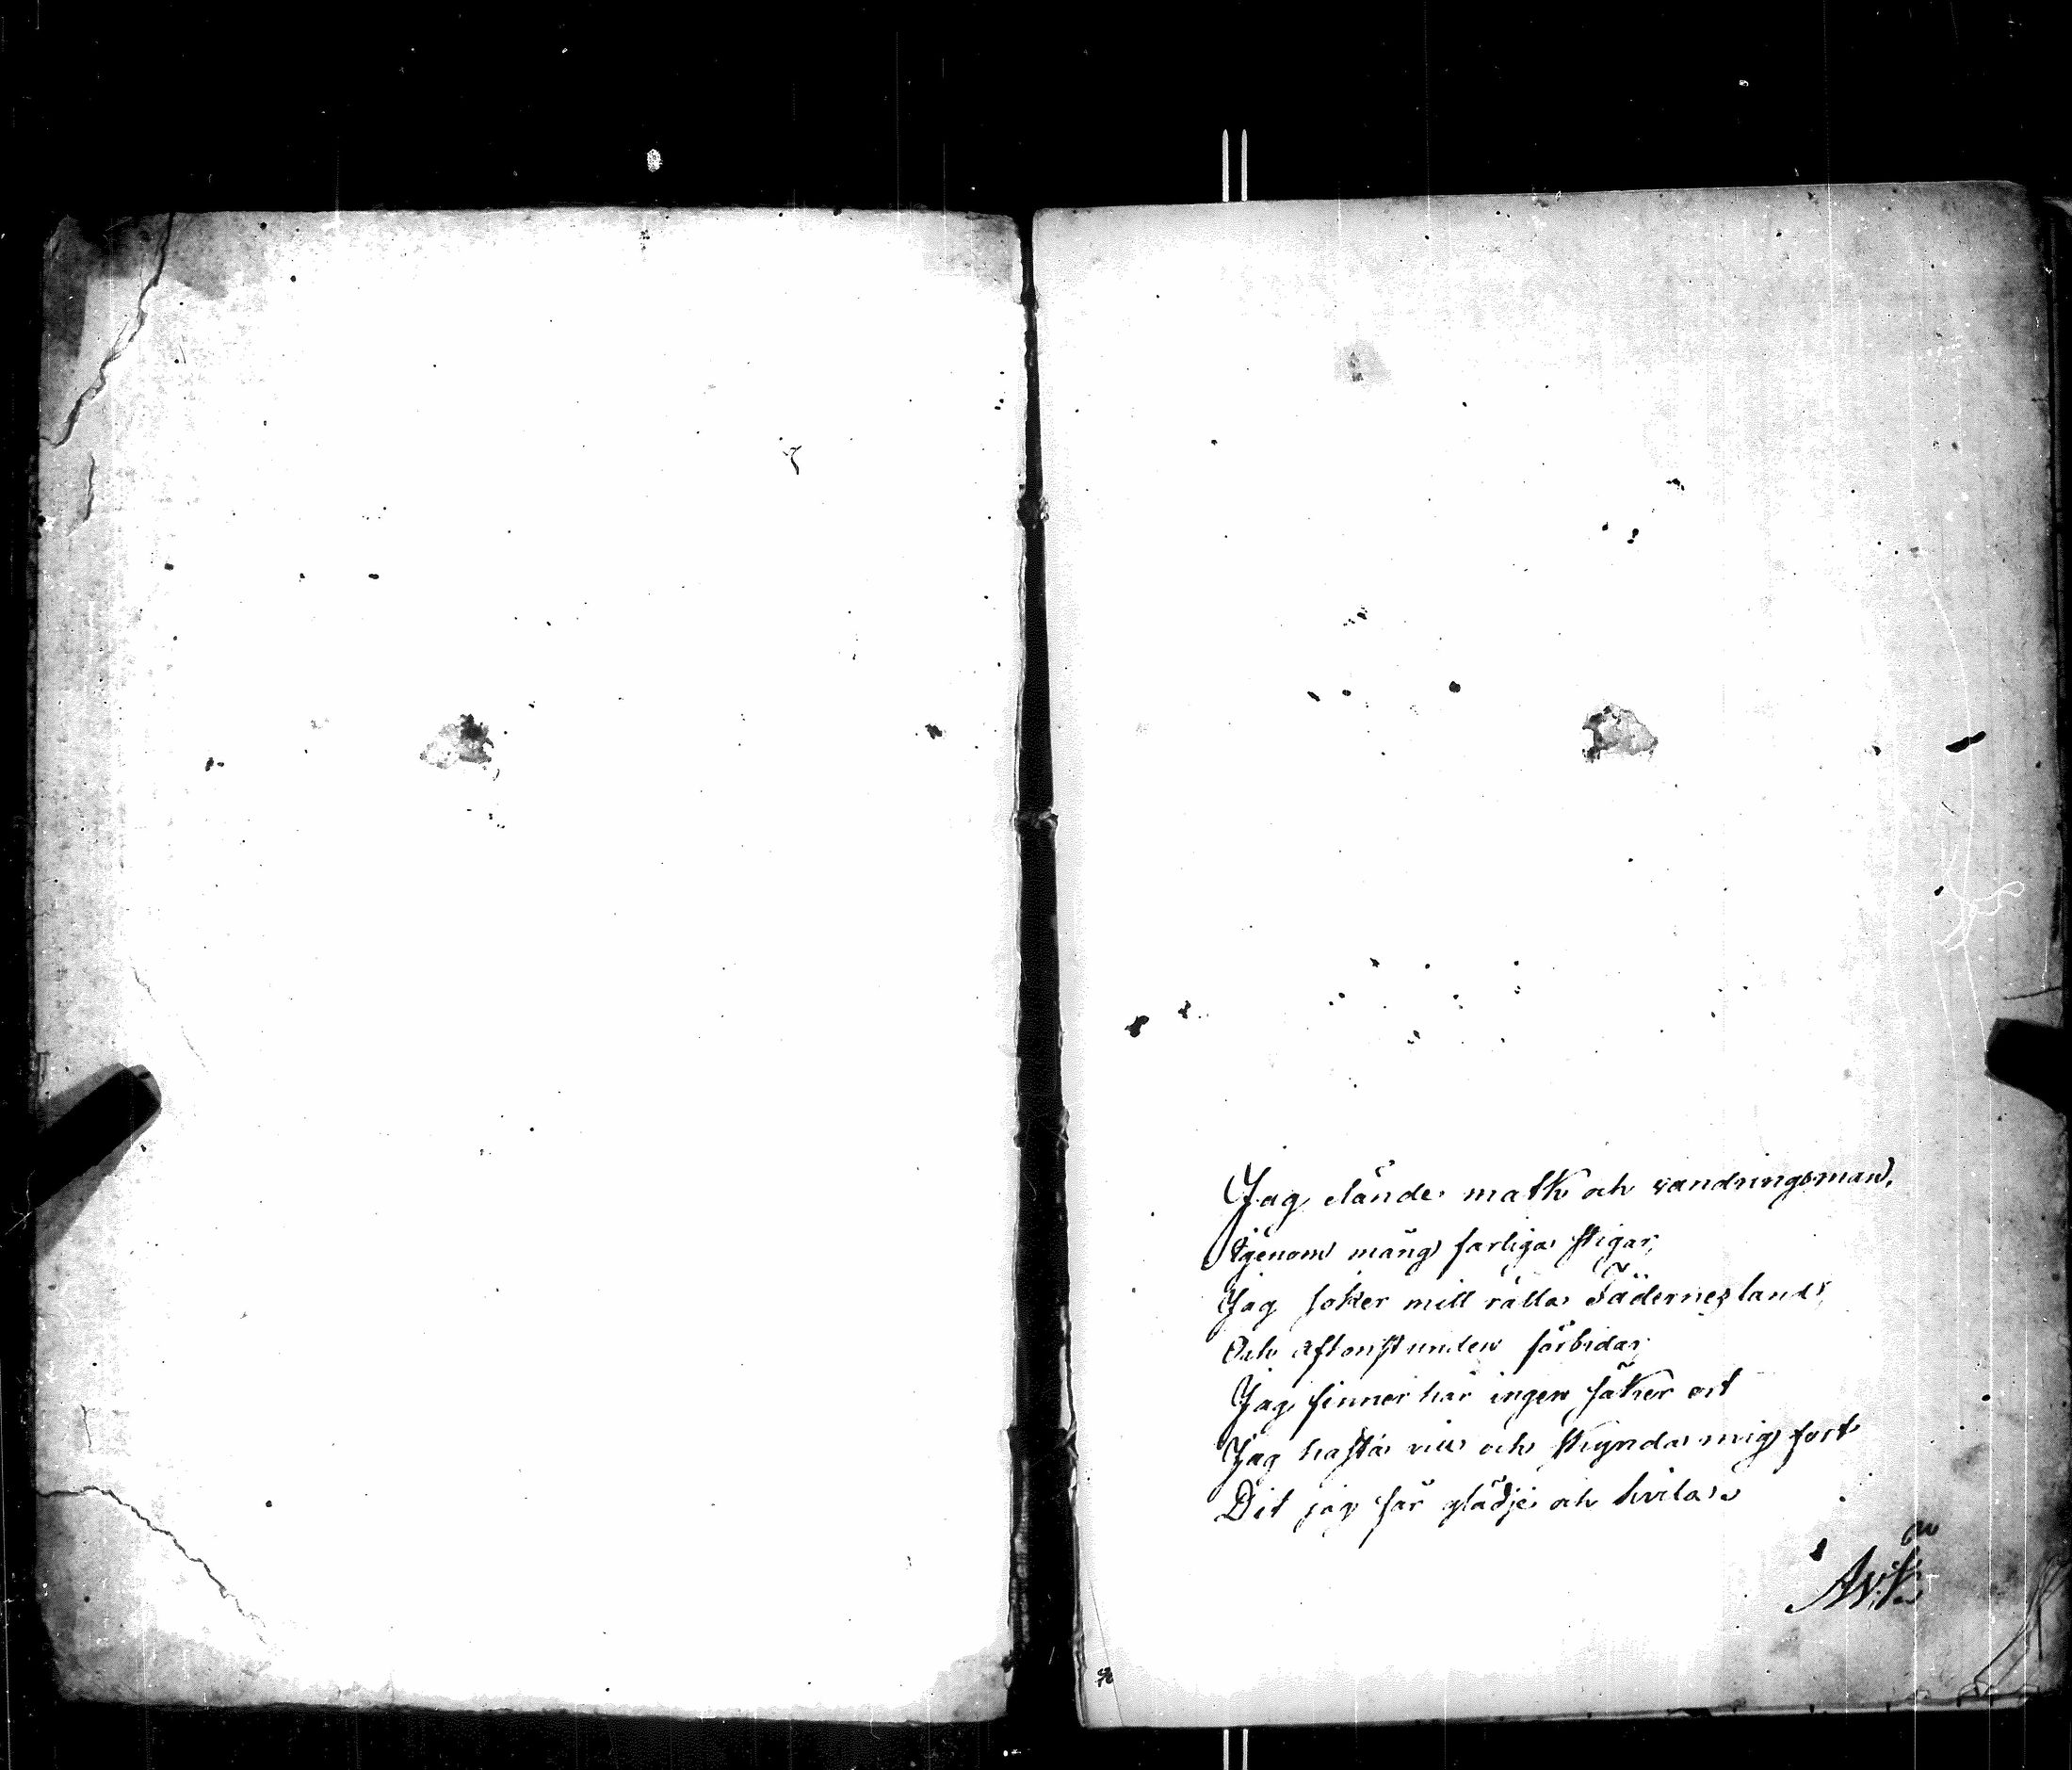 Jag elände matk och vandringsman,
Igenom mång farliga stigar,
Jag söker mitt rätta Fädernesland,
Och aftonstunden förbidar,
Jag finner här ingen säker ort
Jag hasta vill och skynda mig fort
Dit jag får glädje och hvila